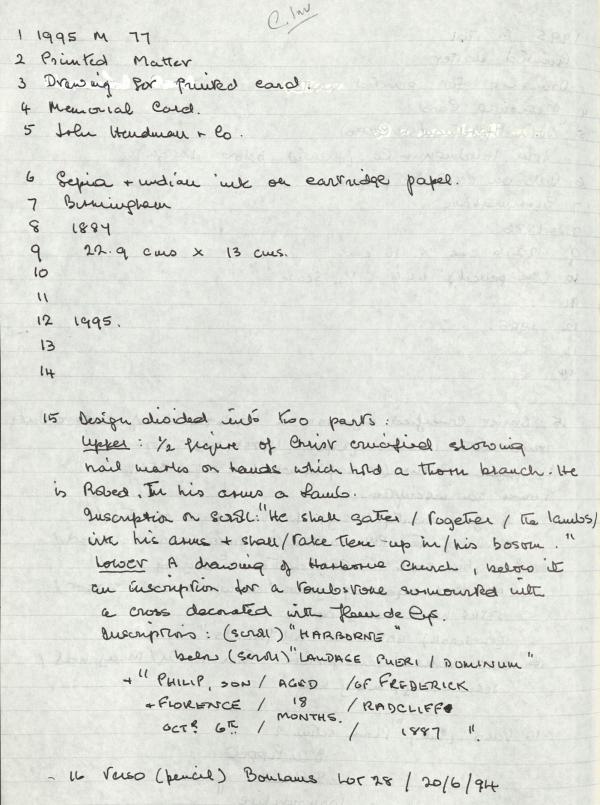 C. Inv
1 1995 M 77
2 Printed Matter
3 Drawing for printed card.
4 Memorial Card.
5 John Hardman + Co.
6 Sepia + indian ink on cartridge paper.
7 Birmingham
8 1887
9 22.9 cms x 13 cms.
10
11
12 1995.
13
14
15 Design divided into two parts:
Upper: 1/2 figure of Christ crucified showing
nail marks on hands which hold a thorn branch. He
is Robed. In his arms a Lamb.
Inscription on scroll: "He shall gather / together / the lambs/
into his arms + shall/take them up in/his bosom."
Lower A drawing of Harborne Church, below it
an inscription for a tombstone surmounted with
a cross decorated with fleur de lys.
Inscriptions: (scroll) "HARBORNE"
below (scroll) "LAUDATE PUERI / DOMINUM"
+ " PHILIP, SON / AGED / OF FREDERICK
+ FLORENCE / 18 MONTHS. / RADCLIFF
OCTR 6TH / / 1887 ".
16 Verso (pencil) Bonhams LOT 28 / 20/6/94